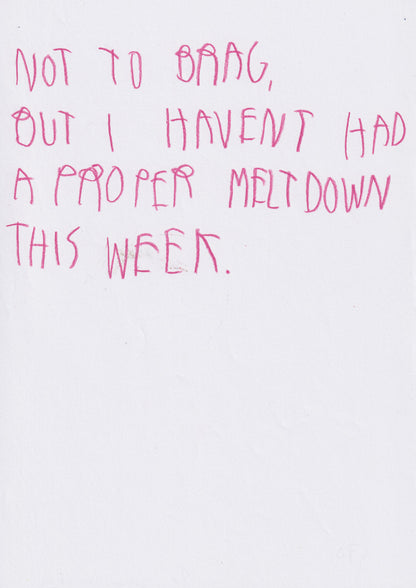 NOT TO BRAG,
BUT I HAVENT HAD
A PROPER MELTDOWN
THIS WEEK.